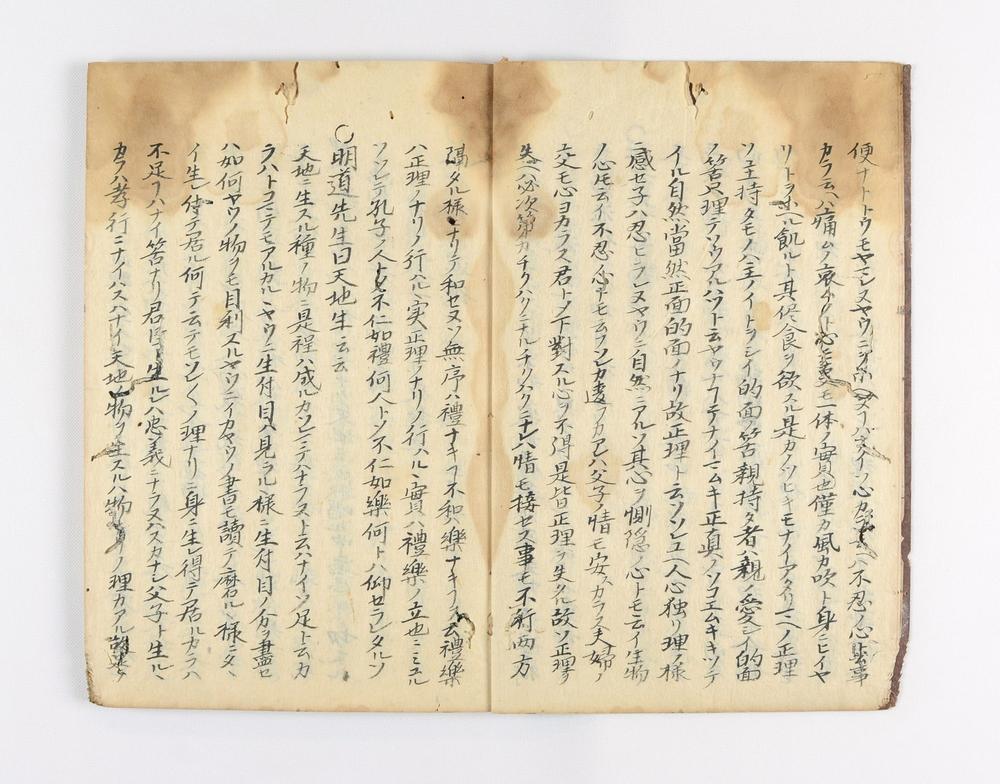 便ナトトウモヤマシヌヤウニ 心カ 不忍ノ心 事
カラ云ハ痛ムノ哀ムノト心ニ モ一体ノ實也僅カ風カ吹ト身ニヒイヤ
リトヲホヘル飢ルト其侭食ヲ欲スル是カノツヒキモナイアタリマヘノ正理
ソ主持タモノハ主ノイトヲシイ的面ノ筈親持タ者ハ親ノ愛シイ的面
ノ筈只理テソウアルハツト云ヤウナフテナイ ムキ正真ノソコエムキキツテ
イル自然當然正面的面ノナリ故正理ト云ソンユヘ人心独リ理ノ様
ニ感セ子ハ忍ヒラレヌヤウニ自然ニアルソ其心ヲ惻隠ノ心トモ云イ生物
ノ心トモ云イ不忍ノ心トモ云ソソカ違フカアレハ父子ノ情モ安スカラス夫婦ノ
交モ心ヨカラス君トノ下對スル心ヲ不得是皆正理ヲ失タル故ソ正理ヲ
失ヘハ必次第カチクハクニナルチクハクニナレハ情モ接セス事モ不行両方
隔タル様ニナリテ和セヌソ無序ハ禮ナキフ不和ハ樂ナキフ 云禮樂
ハ正理ノナリノ行ハル丶実正理ノナリノ行ハル丶實ハ禮樂ノ立也コヽニミユル
ソソレテ孔子ノ人トシテ不仁如禮何人トソ不仁如樂何トハ仰セラレタルソ
○明道先生曰天地生云云
天地ニ生スル種ノ物ニ是程ハ成ルカソレニテハナラヌト云ハナイソ足ト云カ
ラハトコニテモアルカルヽヤウニ生付目ハ見ラル様ニ生付目ノ分ヲ盡セ
ハ如何ヤウノ物ヲモ目利スルヤウニイカヤウノ書モ讀テ磨ルヽ様ニタヽ
イ生レ付テ居ル何テ云テモソレ〱ノ理ナリニ身ニ生レ得テ居ルカラハ
不足ヲハナイ筈ナリ君臣ト生ルレハ忠義ニナラヌハスカナシ父子ト生ルヽ
カラハ孝行ニナイハスハナイ天地ノ物ヲ生スルハ物 ノ理カアル